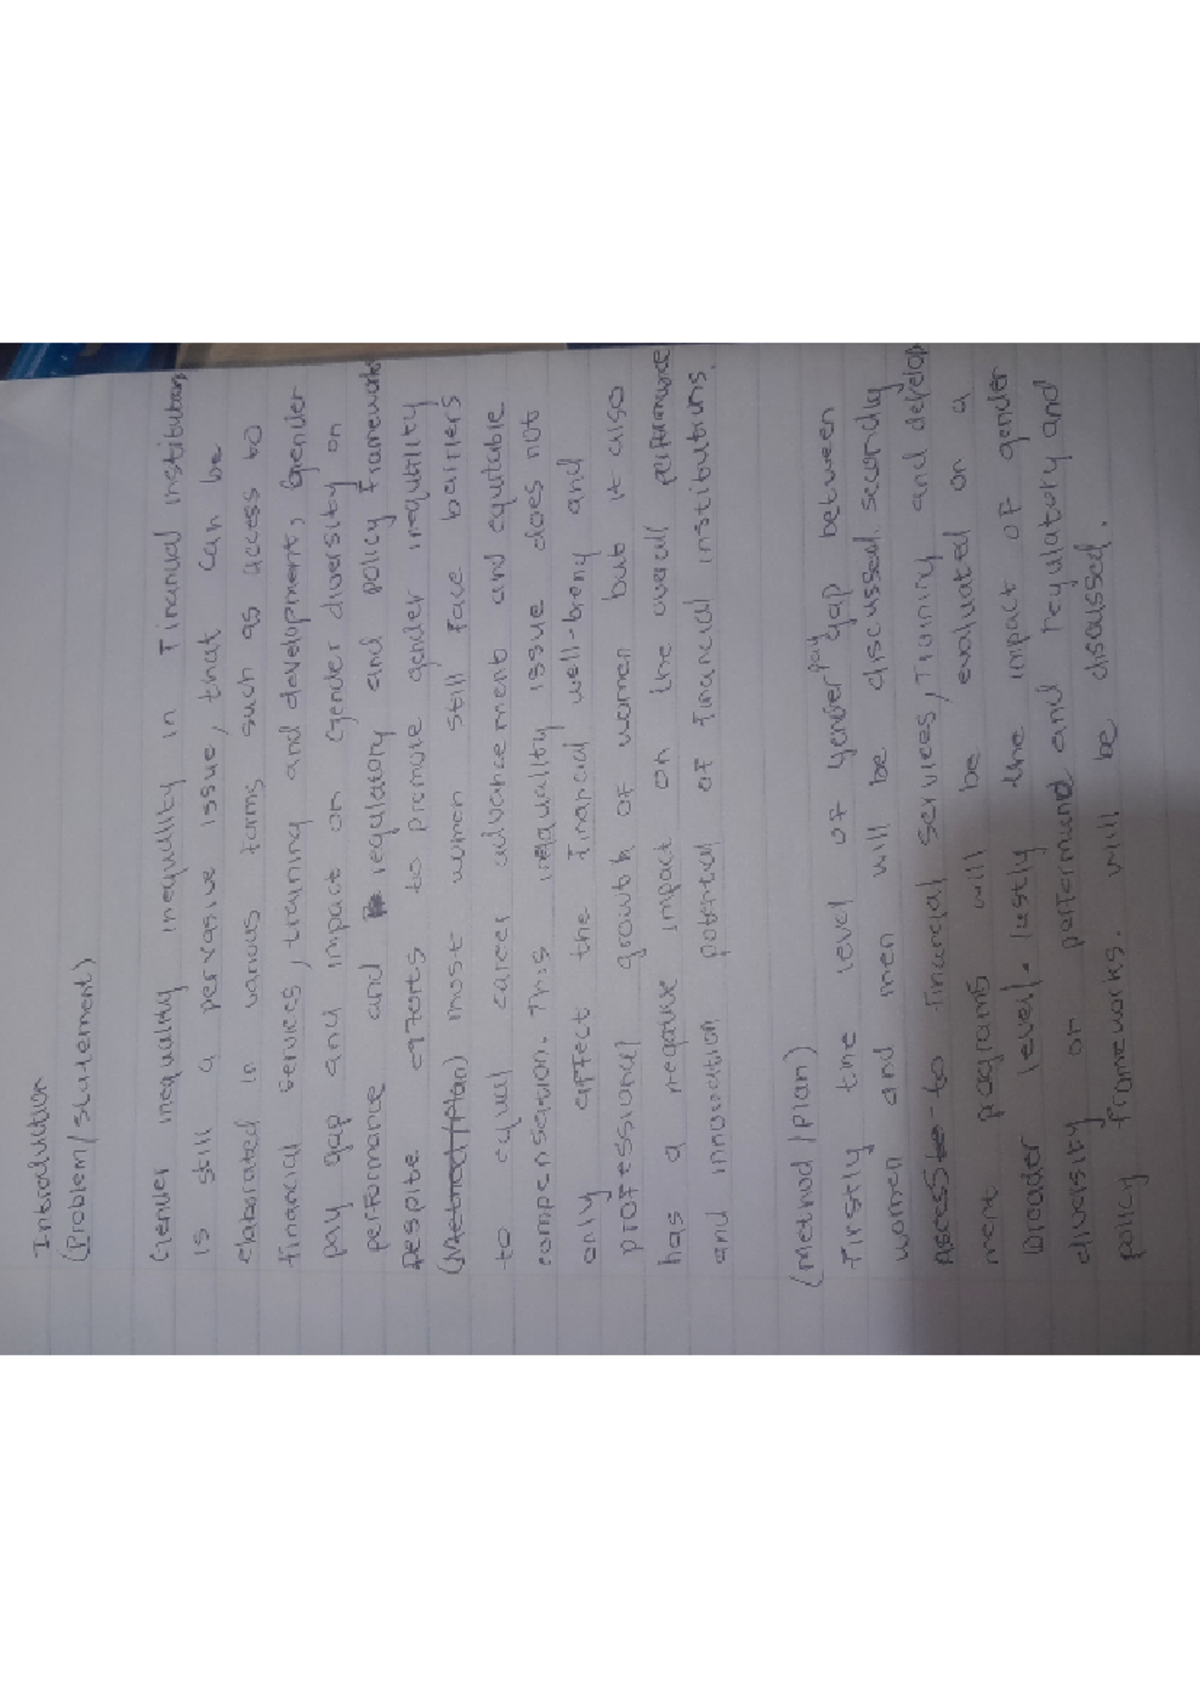 Introduction
(Problem/statement)
Gender inequality inequality in Financial institutions
is still a pervasive issue, that can be
elaborated in various forms such as access to
financial services, training and development, Gender
pay gap and impact on Gender diversity on
performance and regulatory and policy frameworks
Despite efforts to promote gender inequality
(Method/Plan) most women still face barriers
to equal career advancement and equitable
compensation. This inequality issue does not
only affect the financial well-being and
professional growth of women but it also
has a negative impact on the overall performance
and innovation potential of financial institutions.
(Method/Plan)
Firstly the level of gender pay gap between
women and men will be discussed. secondly
access to financial services, Training and develop
ment programs will be evaluated on a
broader level. lastly the impact of gender
diversity on performance and regulatory and
policy frameworks. will be discussed.